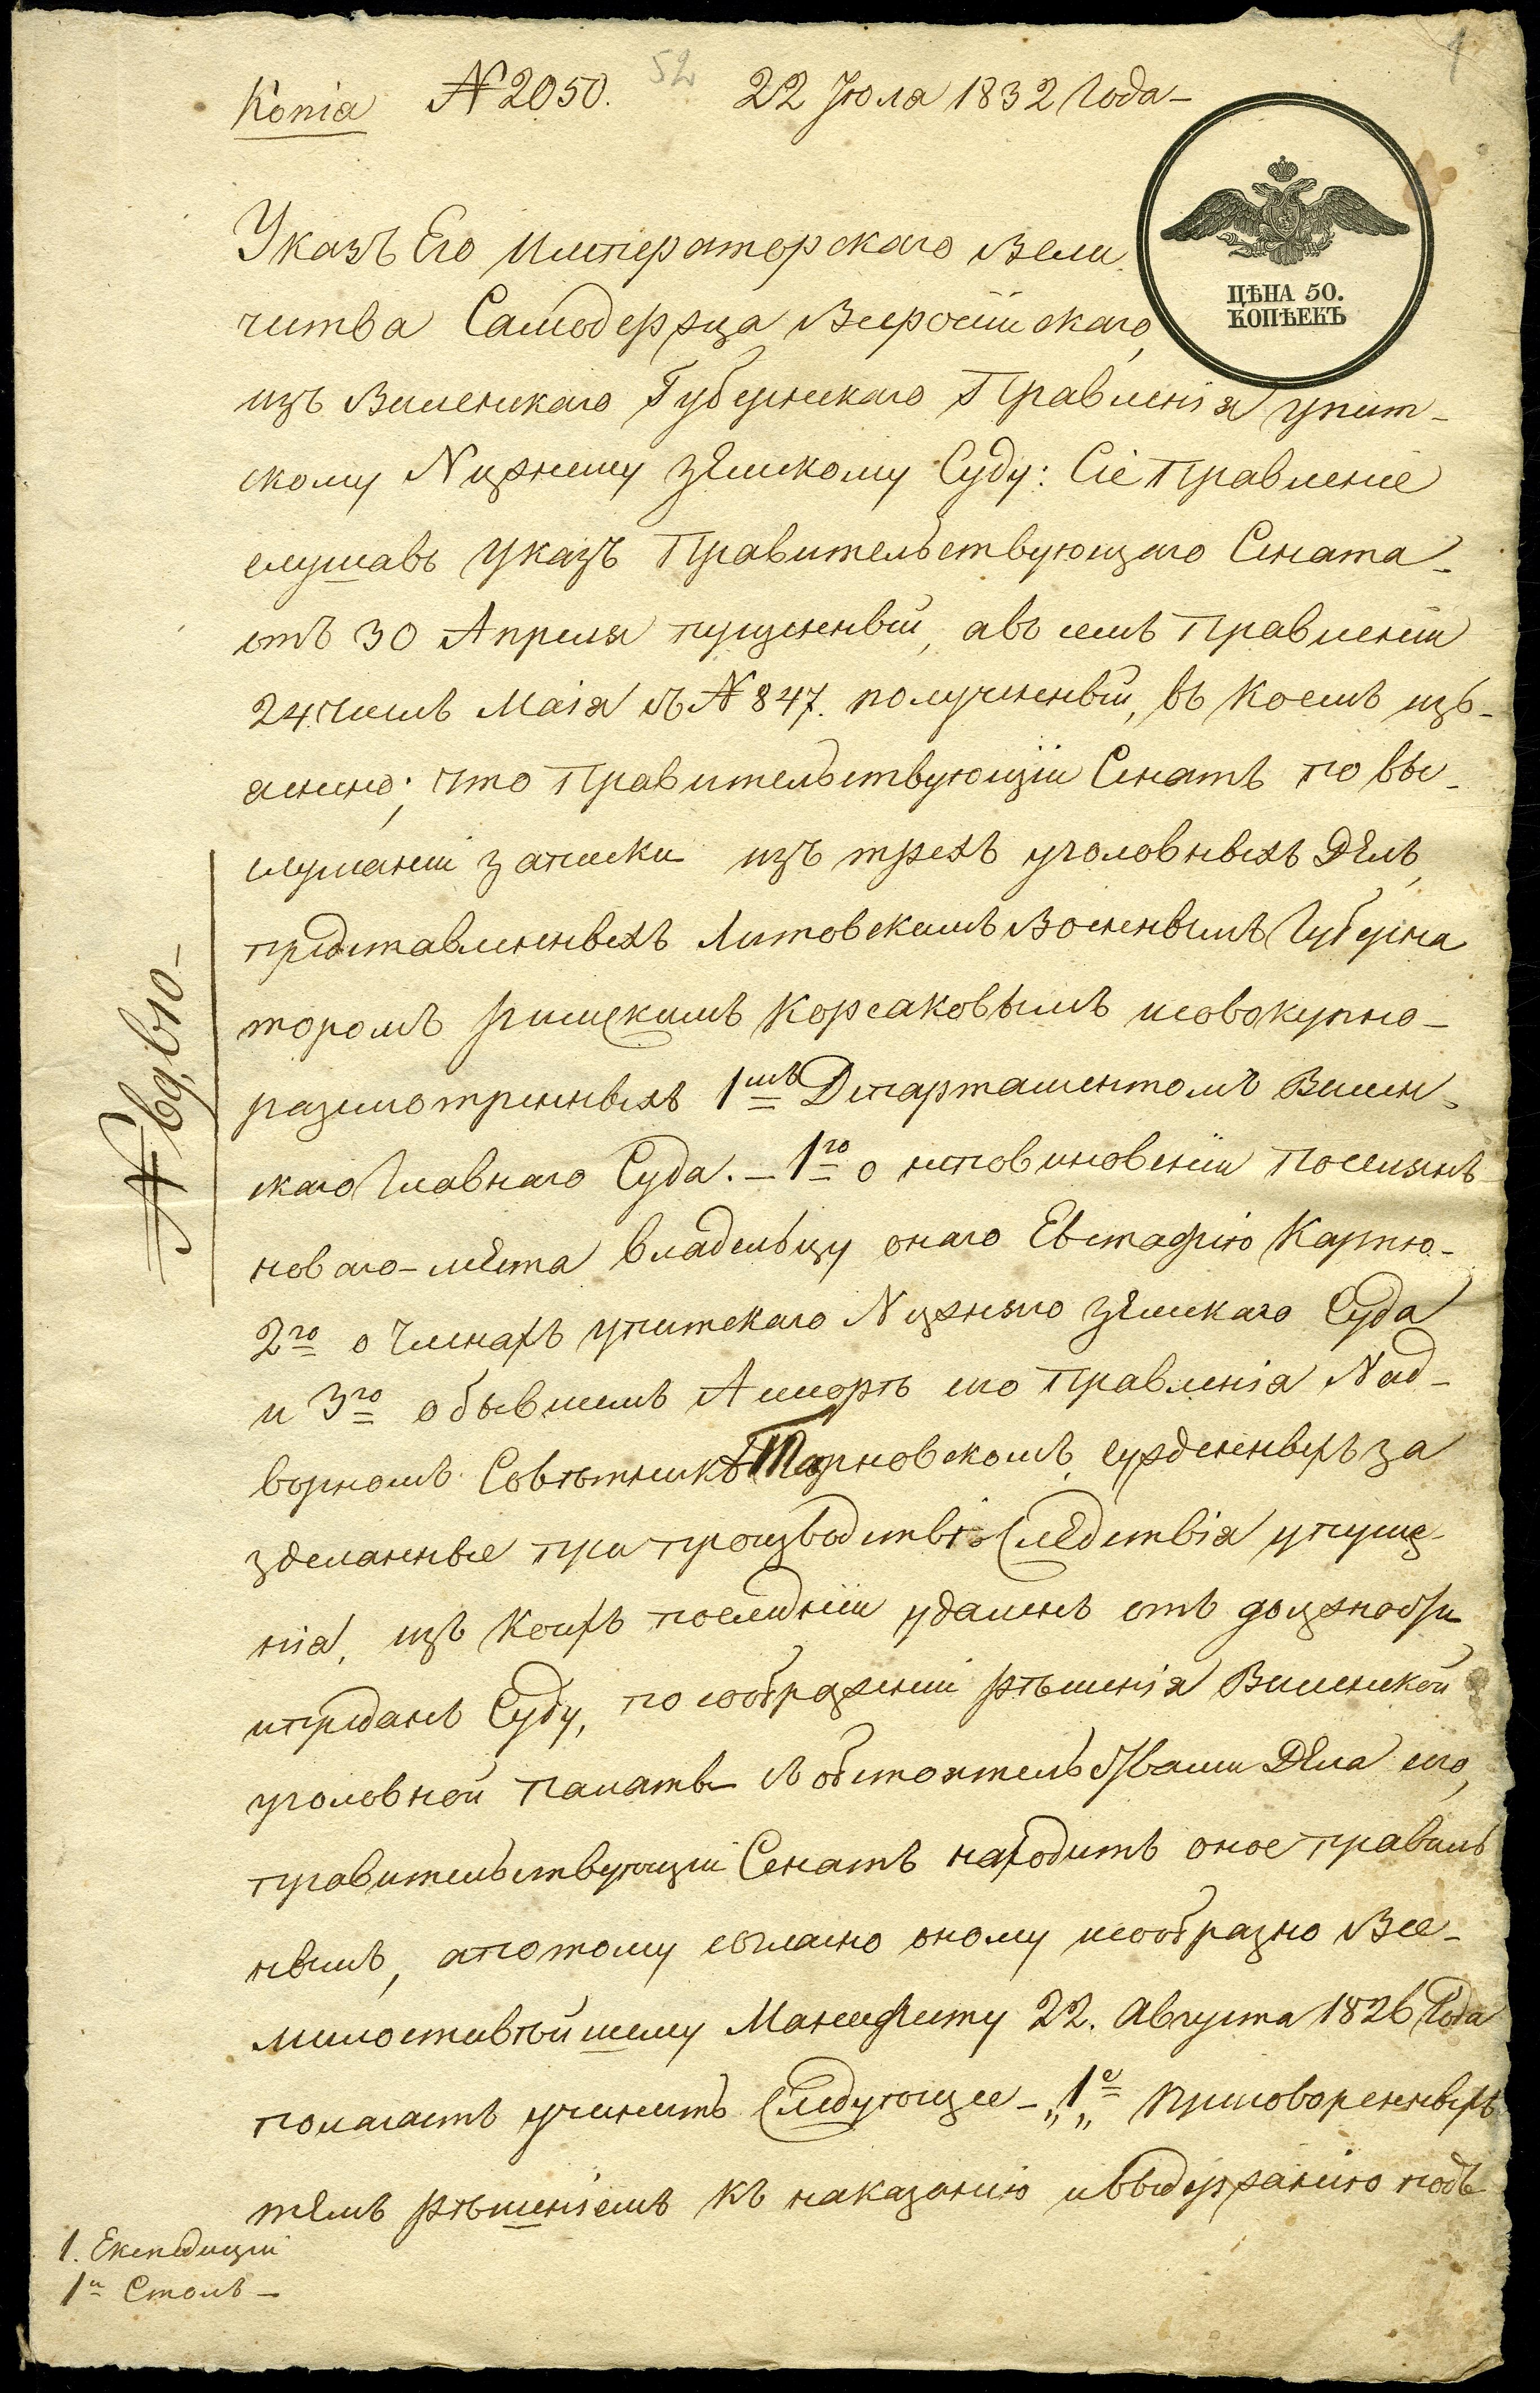 Копiа № 2050. 52 22 Июля 1832 Года –
1
ЦѢНА 50.
КОПѢЕКЪ
Указъ Его Императорскаго Вели
чества Самодержца Всеросiйскаго,
изъ Виленскаго Губернскаго Правленiя упит-
скому Нижнему земскому Суду: Сiе Правленiе
слушавъ Указъ Правительствующаго Сената
отъ 30 Апреля пущенный, авъ семъ Правленiи
24 числъ Маiя съ № 847. полученный, въ коемъ изъ-
яснено; что Правительствующiи Сенатъ по вы-
слушанiи записки изъ трехъ уголовныхъ Дѣлъ,
представленныхъ Литовскимъ Военнымъ Губерна
торомъ Римскимъ Корсаковымъ исовокупно-
разсмотренныхъ 1мъ Департаментомъ Вилен-
скаго Главнаго Суда. – 1го о неповиновенiи Поселянъ
новаго-мѣста владельцу онаго Евстафiю Карпю-
2го о Членахъ упитскаго Нижняго земскаго Суда
и 3го о бывшемъ Асессорѣ сего Правленiя Над-
ворномъ Совѣтникѣ Тарновскомъ, сужденныхъ за
зделанные при производствѣ Следствiя упуще-
нiя, изъ коихъ последнiи удаленъ отъ должности
ипреданъ Суду, по соображенiи рѣшенiя Виленской
уголовной Палаты съ обстоятельствами Дѣла сего,
правительствующiи Сенатъ находитъ оное правиль
нымъ, апотому согласно оному исообразно Все-
милостивѣйшему Манифесту 22. Августа 1826 Года
полагаетъ учинить Следующее – „1е„ Приговоренныхъ
тѣмъ рѣшенiемъ къ наказанiю ивыдержанiю подъ
1. Експедицiи
1й Столъ –